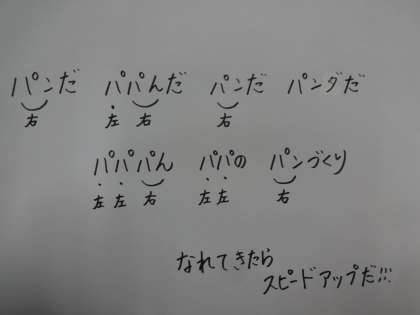 パンだ パパんだ パンだ パンダだ
右 左 右 右
パパパん パパの パンづくり
左 左 右 左 左 右
なれてきたら
スピードアップだ!!!